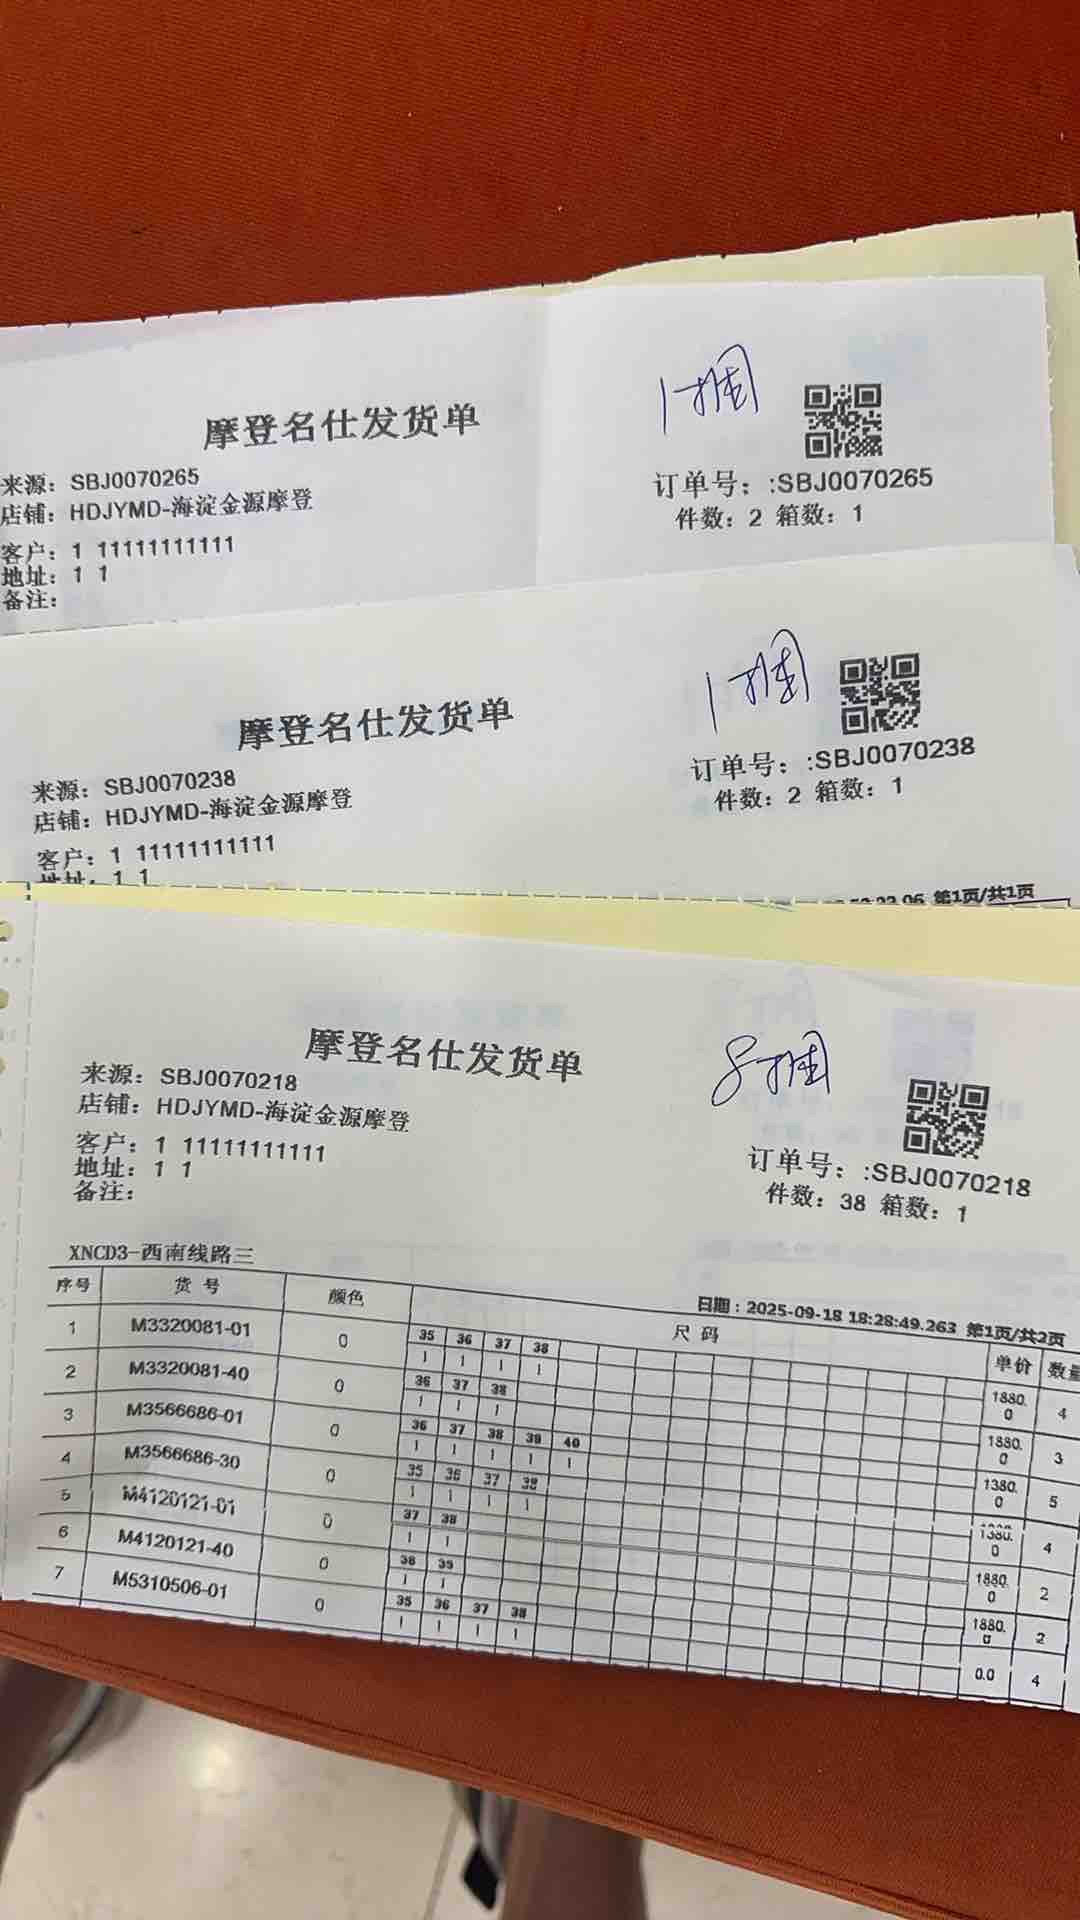 1捆
摩登名仕发货单
来源: SBJ0070265
店铺: HDJYMD-海淀金源摩登
订单号: :SBJ0070265
件数: 2 箱数: 1
客户: 1 11111111111
地址: 1 1
备注:
1捆
摩登名仕发货单
来源: SBJ0070238
店铺: HDJYMD-海淀金源摩登
订单号: :SBJ0070238
件数: 2 箱数: 1
客户: 1 11111111111
地址: 1 1
第1页/共1页
8捆
摩登名仕发货单
来源: SBJ0070218
店铺: HDJYMD-海淀金源摩登
客户: 1 11111111111
地址: 1 1
备注:
订单号: :SBJ0070218
件数: 38 箱数: 1
XNCD3-西南线路三
日期: 2025-09-18 18:28:49.263 第1页/共2页
序号 货号 颜色 尺码 单价 数量
1 M3320081-01 0 35 36 37 38 1880.0 4
1 1 1 1
2 M3320081-40 0 36 37 38 1880.0 3
1 1 1
3 M3566686-01 0 36 37 38 39 40 1380.0 5
1 1 1 1 1
4 M3566686-30 0 35 36 37 38 1380.0 4
1 1 1 1
5 M4120121-01 0 37 38 1880.0 2
1 1
6 M4120121-40 0 38 39 1880.0 2
1 1
7 M5310506-01 0 35 36 37 38 0.0 4
1 1 1 1